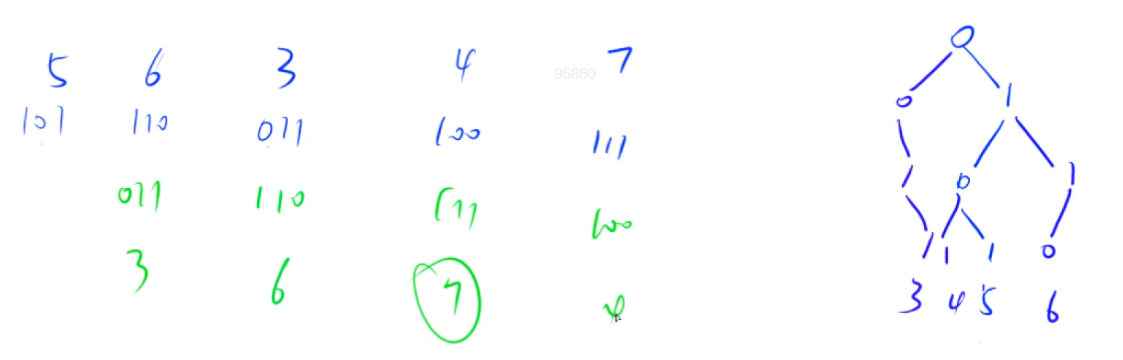 5 6 3 4 7
95860
101 110 011 100 111
011 110 111 100
3 6 7 4
0
0 1
1 0 1
1 1 1 0
3 4 5 6